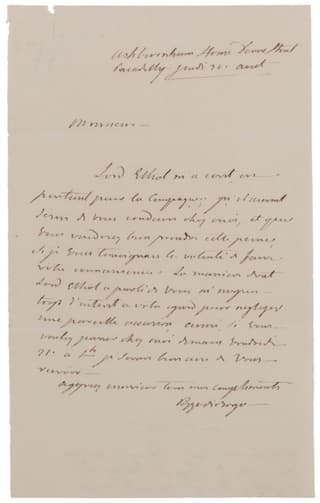 Ashburnham House Dover Street
Piccadilly jeudi 20. avril
Monsieur
Lord Elliot m'a écrit en
partant pour la Campagne, qu'il avait
de vous conduire chez moi, et que
vous voudriez bien prendre cette peine
si je vous témoignais la volonté de faire
votre connaissance. La manière dont
Lord Elliot a parlé de vous m'inspire
trop d'intérêt à votre égard pour négliger
une pareille occasion aussi si vous
voulez passer chez moi demain vendredi
21. à je serais bien aise de vous
recevoir
agréez monsieur tous mes compliments
Pozzo di Borgo